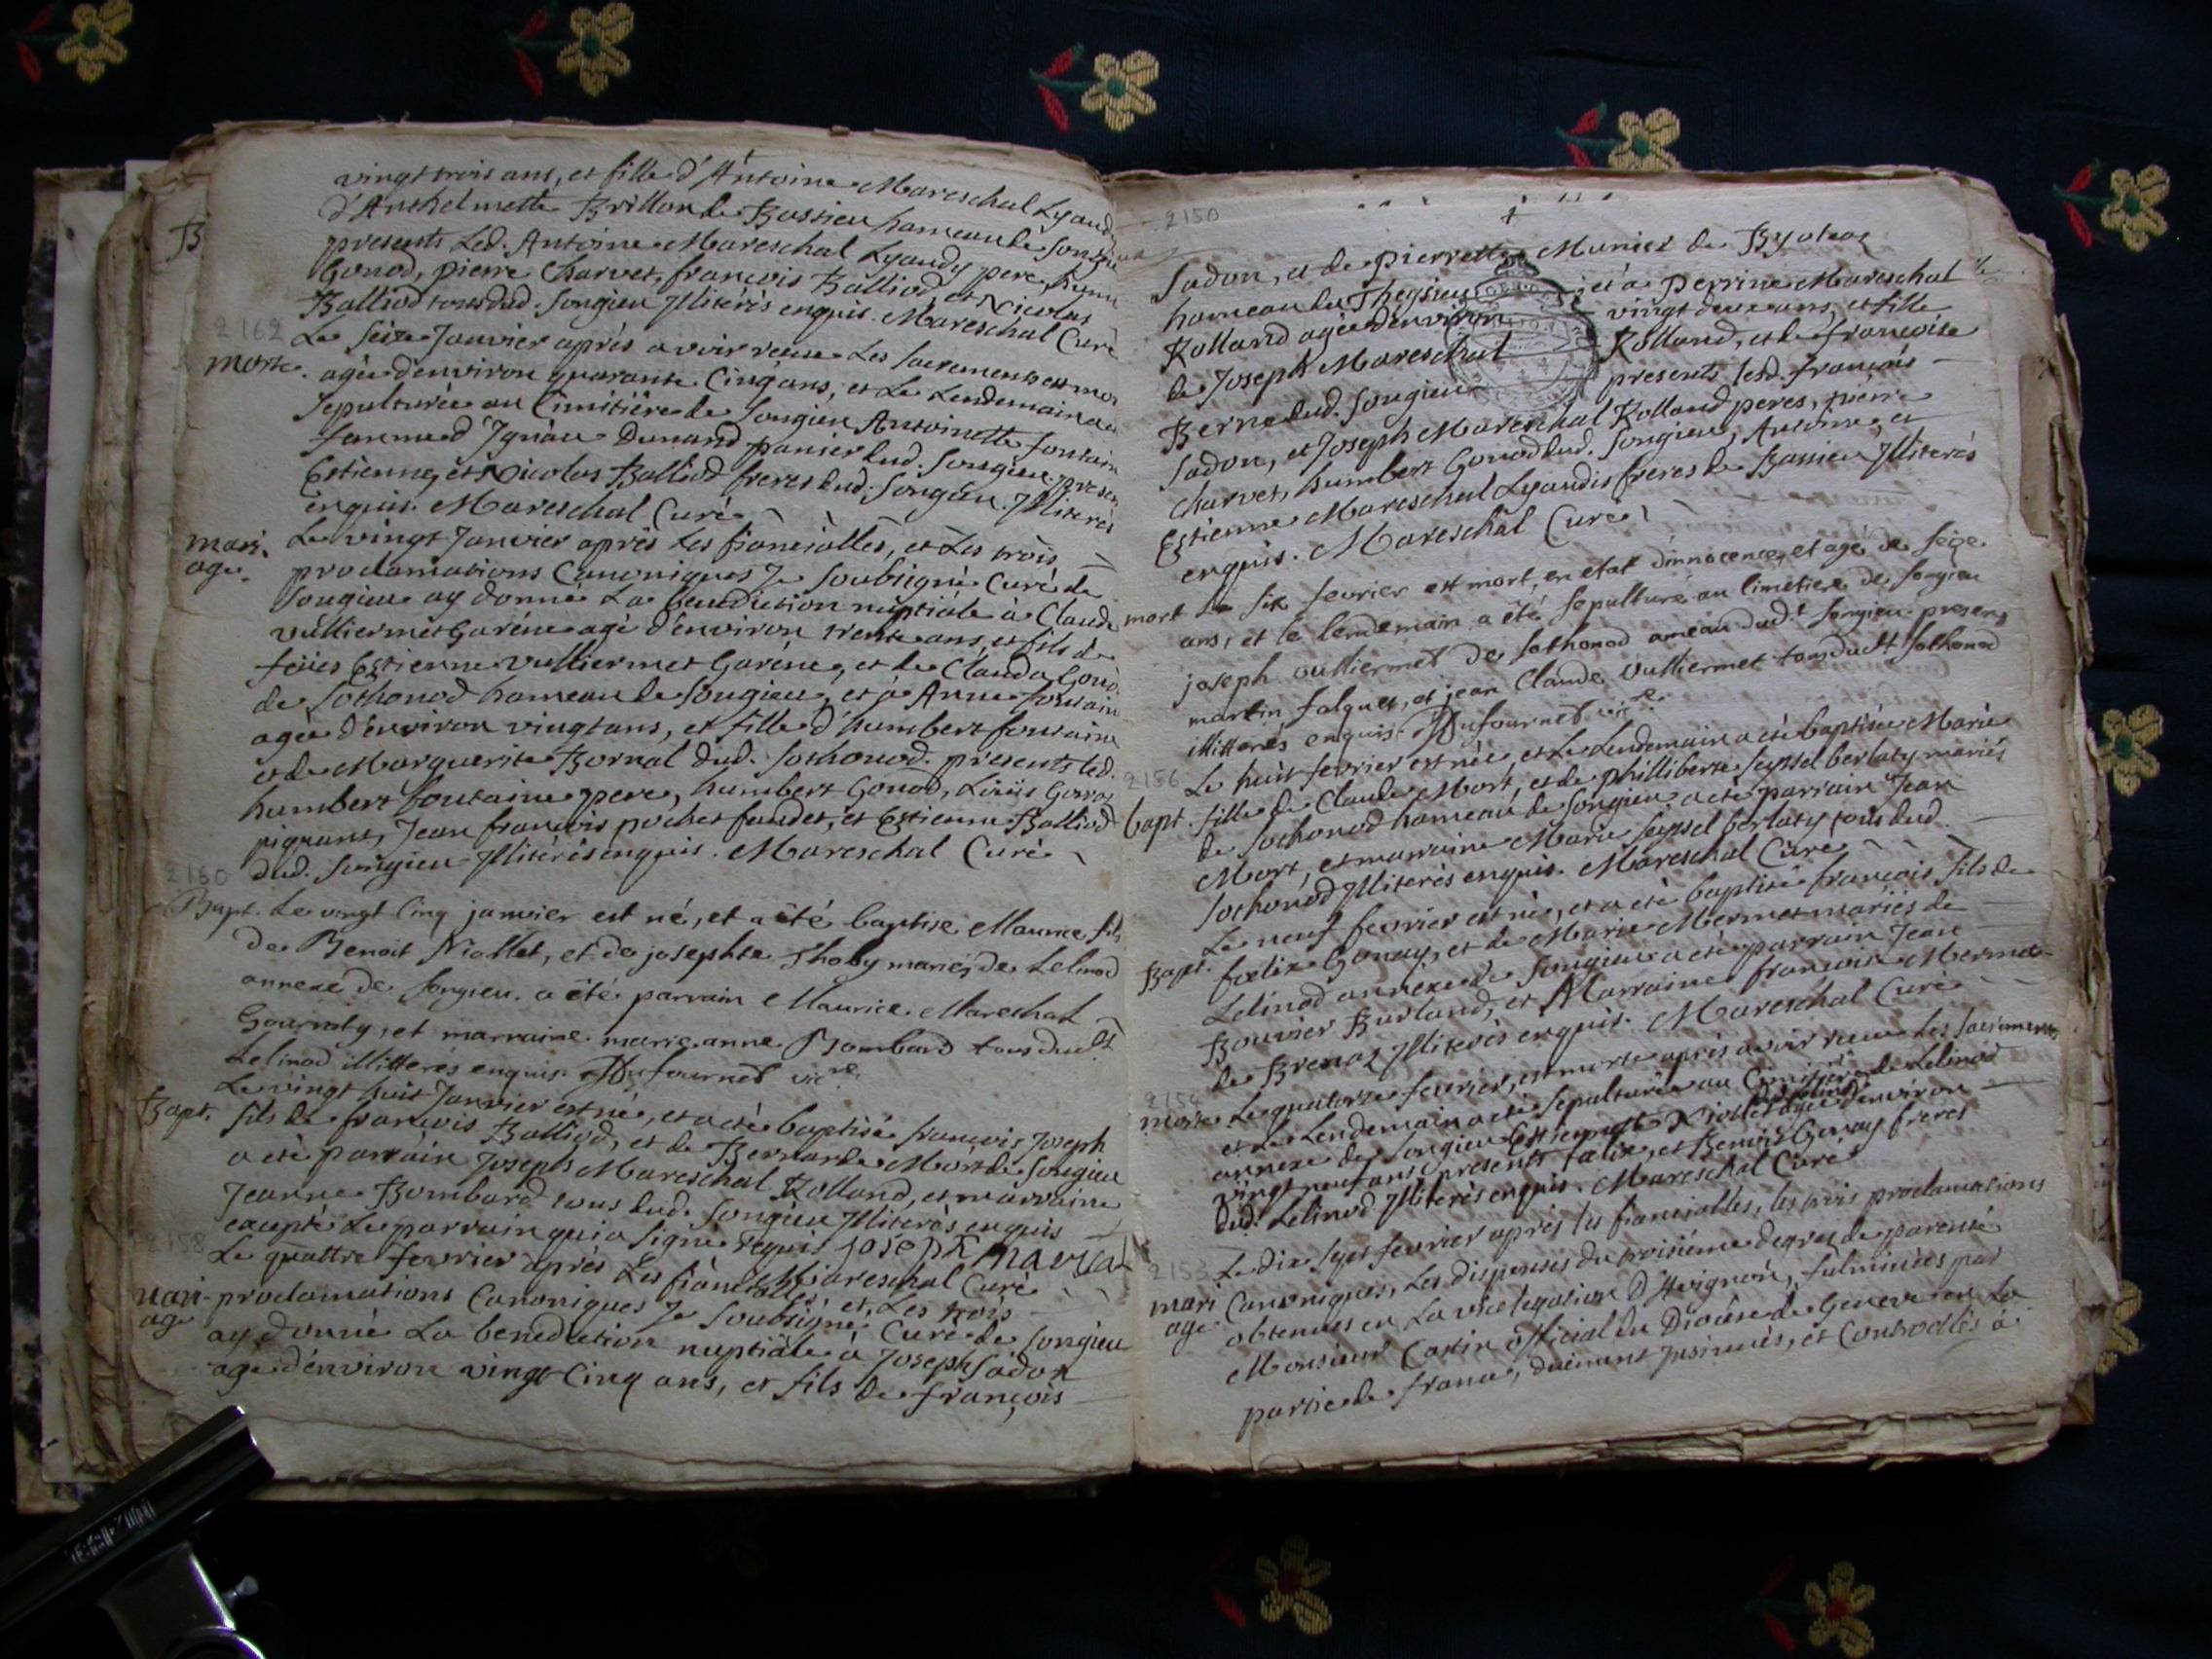 vingt trois ans, et fille d'Antoine Mareschal Lyaudy
d'Anthelmette Brillon de Bassieu hameau de Songieu
presents Led. Antoine Mareschal Lyaudy pere, hum
Gonod, pierre Charvet, francois Balliod, et Nicolas
Balliod tous dud. Songieu Jlliterés enquis. Mareschal Curé
2162
Le seize Janvier aprés avoir receu Les sacrements est mor
morte. agée d'environ quarante Cinq ans, et Le Lendemain a
sepulturée au Cimitiére de Songieu Antoinette fontain
femme d'Ygnace Dunand panier dud. Songieu presen
Estienne, et Nicolas Balliod freres dud. Songieu. Jlliterés
enquis. Mareschal Curé
mari. Le vingt Janvier aprés Les fiancialles, et Les trois
age. proclamations Canoniques Je soubsigné Curé de
Songieu ay donné La benediction nuptiale a Claude
vulliermet Garéne agé d'environ trente ans, et fils de
feües Estienne vulliermet Garéne, et de Clauda Gono
de Sothonod hameau de Songieu, et à Anne fontain
agée d'environ vingt ans, et fille d'humbert fontaine
et de Marguerite Bornal dud. Sothonod. presents led.
humbert fontaine pere, humbert Gonod, Loüis Gonod
pignant, Jean francois pochet faudet, et Estienne Balliod
dud. Songieu Jlliterés enquis. Mareschal Curé
2160
Bapt. Le vingt Cinq janvier est né, et a êté baptise Maurice fils
de Benoit Niollet, et de josephte Thoby mariés de Lelinod
annexe de songieu. a êté parrain Maurice Mareschal
Gournaty, et marraine marie anne Bombard tous dudt
Lelinod illitterés enquis Dufournet vicre
Le vingt huit Janvier est né, et a eté baptisé francois Joseph
Bapt. fils de francois Balliod, et de Bernarde Mort de Songieu
a eté parrain Joseph Mareschal Rolland, et marraine
Jeanne Bombard tous dud. Songieu Jlliterés enquis
excepté Le parrain qui a signé requis joseph marechal
2158 Mareschal Curé
Le quattre fevrier aprés Les fiancialles, et Les trois
mari- proclamations Canoniques Je soubsigné Curé de Songieu
age ay donné La benediction nuptiale à Joseph Sadon
agé d'environ vingt Cinq ans, et fils de francois
2150
Sadon, et de pierrette Munier de Byoleaz
hameau de Thezieu, et à perrine Mareschal
Rolland agée d'environ vingt deux ans, et fille
de Joseph Mareschal Rolland, et de francoise
Berne dud. Songieu presents lesd. francois
Sadon, et Joseph Mareschal Rolland peres, pierre
Charvet, humbert Gonod dud. Songieu, Antoine, et
Estienne Mareschal Lyaudis freres de Bassieu Jlliterés
enquis. Mareschal Curé
mort Le six fevrier est mort, en etat d'innocence, et agé de sege
ans, et le lendemain a êté sepulturé au cimetiere de songieu
joseph vulliermet de sothonod ameau dudt songieu presens
martin falquet, et jean Claude vulliermet tous dudt sothonod
illitterés enquis Dufournet vicre
2156 Le huit fevrier est née, et Le Lendemain a eté baptisée Marie
bapt. fille de Claude Mort, et de philliberte Seyssel berlaty mariés
de Sothonod hameau de Songieu a eté parrain Jean
Mort, et marraine Marie Seyssel berlaty tous dud.
Sothonod Jlliterés enquis. Mareschal Curé
Le neuf fevrier est né, et a eté baptisé francois fils de
Bapt. foelix Gonay, et de Marie Mermet mariés de
Lelinod annexe de Songieu a eté parrain Jean
Bouvier Burland, et Marraine francoise Mermet
de Brenaz Jlliterés enquis. Mareschal Curé
2154
morte Le quatorze fevrier, est morte aprés avoir receu Les sacrements
et Le Lendemain a eté sepulturée au Cimitiere de Lelinod
annexe de Songieu Estiennette Niollet agée d'environ
vingt neuf ans presents foelix, et Benoit Gonay freres
dud. Lelinod Jlliterés enquis. Mareschal Curé
2153 Le dix sept fevrier aprés les fiancialles, les trois proclamations
mari Canoniques, Les dispenses du troisiéme degrez de parenté
age. obtenues en La vice legation D'Avignon, fulminées par
Monsieur Castin official du Diocése de Geneve en La
partie de france, duëment Jnsinués, et Controllés à